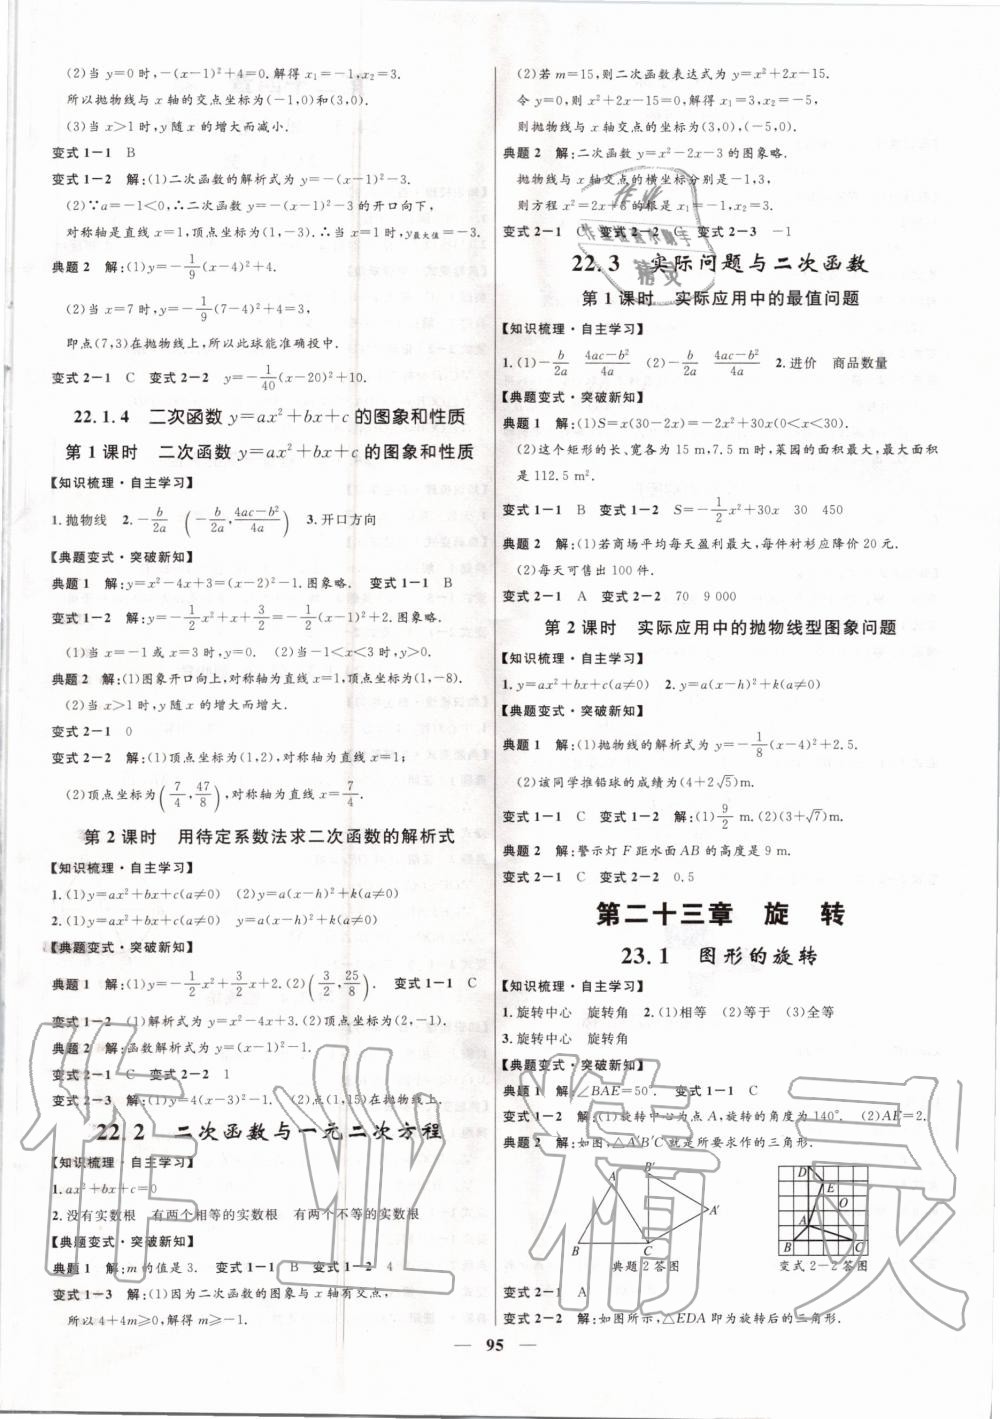 (2)当 y=0 时,-(x-1)²+4=0.解得 x₁=-1,x₂=3.
所以抛物线与 x 轴的交点坐标为(-1,0)和(3,0).
(3)当 x>1 时,y 随 x 的增大而减小.
变式1-1 B
变式1-2 解:(1)二次函数的解析式为 y=-(x-1)²-3.
(2)∵a=-1<0,∴二次函数 y=-(x-1)²-3 的开口向下,
对称轴是直线 x=1,顶点坐标为(1,-3).∴当 x=1 时,y最大值=-3.
典题2 解:(1)y=-1/9(x-4)²+4.
(2)当 x=7 时,y=-1/9(7-4)²+4=3,
即点(7,3)在抛物线上,所以此球能准确投中.
变式2-1 C 变式2-2 y=-1/40(x-20)²+10.
22.1.4 二次函数 y=ax²+bx+c 的图象和性质
第1课时 二次函数 y=ax²+bx+c 的图象和性质
【知识梳理·自主学习】
1.抛物线 2.-b/2a (-b/2a,(4ac-b²)/4a) 3.开口方向
【典题变式·突破新知】
典题1 解:y=x²-4x+3=(x-2)²-1.图象略. 变式1-1 B
变式1-2 解:y=-1/2x²+x+3/2=-1/2(x-1)²+2.图象略.
(1)当 x=-1 或 x=3 时,y=0. (2)当-1<x<3 时,y>0.
典题2 解:(1)图象开口向上,对称轴为直线 x=1,顶点坐标为(1,-8).
(2)当 x>1 时,y 随 x 的增大而增大.
变式2-1 0
变式2-2 解:(1)顶点坐标为(1,2),对称轴为直线 x=1;
(2)顶点坐标为(7/4,47/8),对称轴为直线 x=7/4.
第2课时 用待定系数法求二次函数的解析式
【知识梳理·自主学习】
1.(1)y=ax²+bx+c(a≠0) (2)y=a(x-h)²+k(a≠0)
2.(1)y=ax²+bx+c(a≠0) y=a(x-h)²+k(a≠0)
【典题变式·突破新知】
典题1 解:(1)y=-1/2x²+3/2x+2.(2)(3/2,25/8). 变式1-1 C
变式1-2 (1)解析式为 y=x²-4x+3.(2)顶点坐标为(2,-1).
典题2 解:函数解析式为 y=2(x-1)²-1.
变式2-1 C 变式2-2 1
变式2-3 解:(1)y=4(x-3)²-1.(2)点(1,15)在抛物线上.
22.2 二次函数与一元二次方程
【知识梳理·自主学习】
1.ax²+bx+c=0
2.没有实数根 有两个相等的实数根 有两个不等的实数根
【典题变式·突破新知】
典题1 解:m 的值是3. 变式1-1 B 变式1-2 4
变式1-3 解:(1)因为二次函数的图象与 x 轴有交点,
所以 4+4m≥0,解得 m≥-1.
(2)若 m=15,则二次函数表达式为 y=x²+2x-15.
令 y=0,则 x²+2x-15=0,解得 x₁=3,x₂=-5,
则抛物线与 x 轴交点的坐标为(3,0),(-5,0).
典题2 解:二次函数 y=x²-2x-3 的图象略.
抛物线与 x 轴交点的横坐标分别是-1,3,
则方程 x²=2x+3 的根是 x₁=-1,x₂=3.
变式2-1 C 变式2-2 C 变式2-3 -1
22.3 实际问题与二次函数
第1课时 实际应用中的最值问题
【知识梳理·自主学习】
1.(1)-b/2a (4ac-b²)/4a (2)-b/2a (4ac-b²)/4a 2.进价 商品数量
【典题变式·突破新知】
典题1 解:(1)S=x(30-2x)=-2x²+30x(0<x<30).
(2)这个矩形的长、宽各为 15 m,7.5 m 时,菜园的面积最大,最大面积
是 112.5 m².
变式1-1 B 变式1-2 S=-1/2x²+30x 30 450
典题2 解:(1)若商场平均每天盈利最大,每件衬衫应降价20元.
(2)每天可售出100件.
变式2-1 A 变式2-2 70 9 000
第2课时 实际应用中的抛物线型图象问题
【知识梳理·自主学习】
1.y=ax²+bx+c(a≠0) 2.y=a(x-h)²+k(a≠0)
【典题变式·突破新知】
典题1 解:(1)抛物线的解析式为 y=-1/8(x-4)²+2.5.
(2)该同学推铅球的成绩为(4+2√5)m.
变式1-1 C 变式1-2 解:(1)9/2 m.(2)(3+√7)m.
典题2 解:警示灯 F 距水面 AB 的高度是9 m.
变式2-1 C 变式2-2 0.5
第二十三章 旋 转
23.1 图形的旋转
【知识梳理·自主学习】
1.旋转中心 旋转角 2.(1)相等 (2)等于 (3)全等
3.旋转中心 旋转角
【典题变式·突破新知】
典题1 解:∠BAE=50°. 变式1-1 C
变式1-2 解:(1)旋转中心为点 A,旋转的角度为140°.(2)AE=2.
典题2 解:如图,△A'B'C 就是所要求作的三角形.
A B' A' B C
D E O A B C
典题2答图 变式2-2答图
变式2-1 A
变式2-2 解:如图所示,△EDA 即为旋转后的三角形.
95
作业精灵